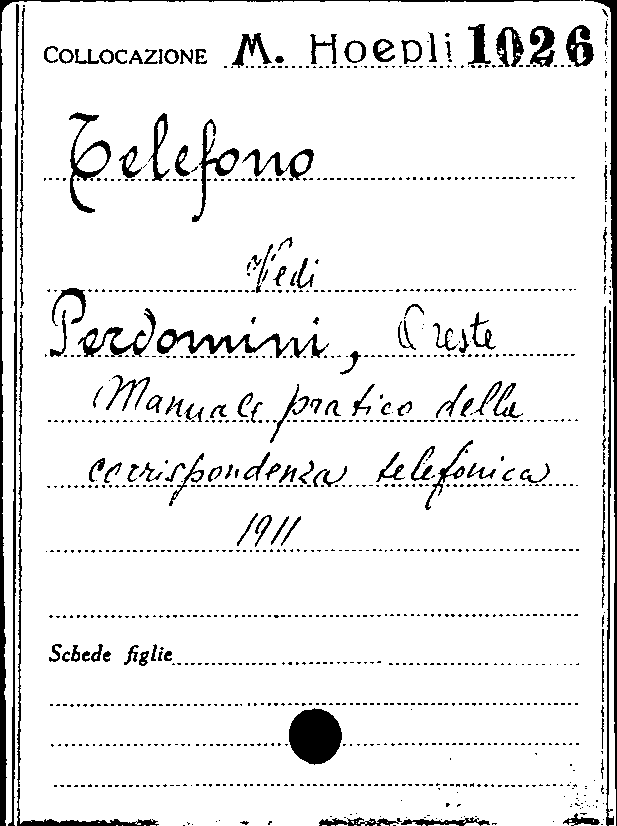 COLLOCAZIONE M. Hoepli 1026
Telefono
Vedi
Perdomini, Oreste
Manuale pratico della
corrispondenza telefonica
1911
Schede figlie